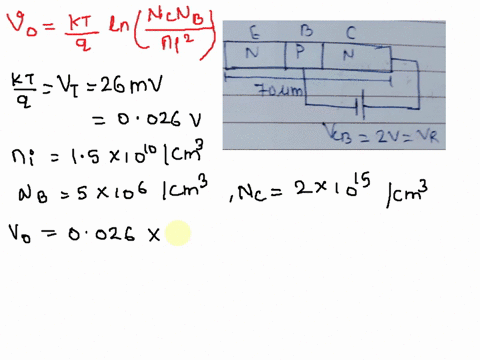 V₀ = KT/q ln(NcNB/ni²)
E B C
N P N
70 μm
VCB = 2V = VR
KT/q = VT = 26 mV
= 0.026 V
ni = 1.5 × 10¹⁰ /cm³
NB = 5 × 10⁶ /cm³ , Nc = 2 × 10¹⁵ /cm³
V₀ = 0.026 ×